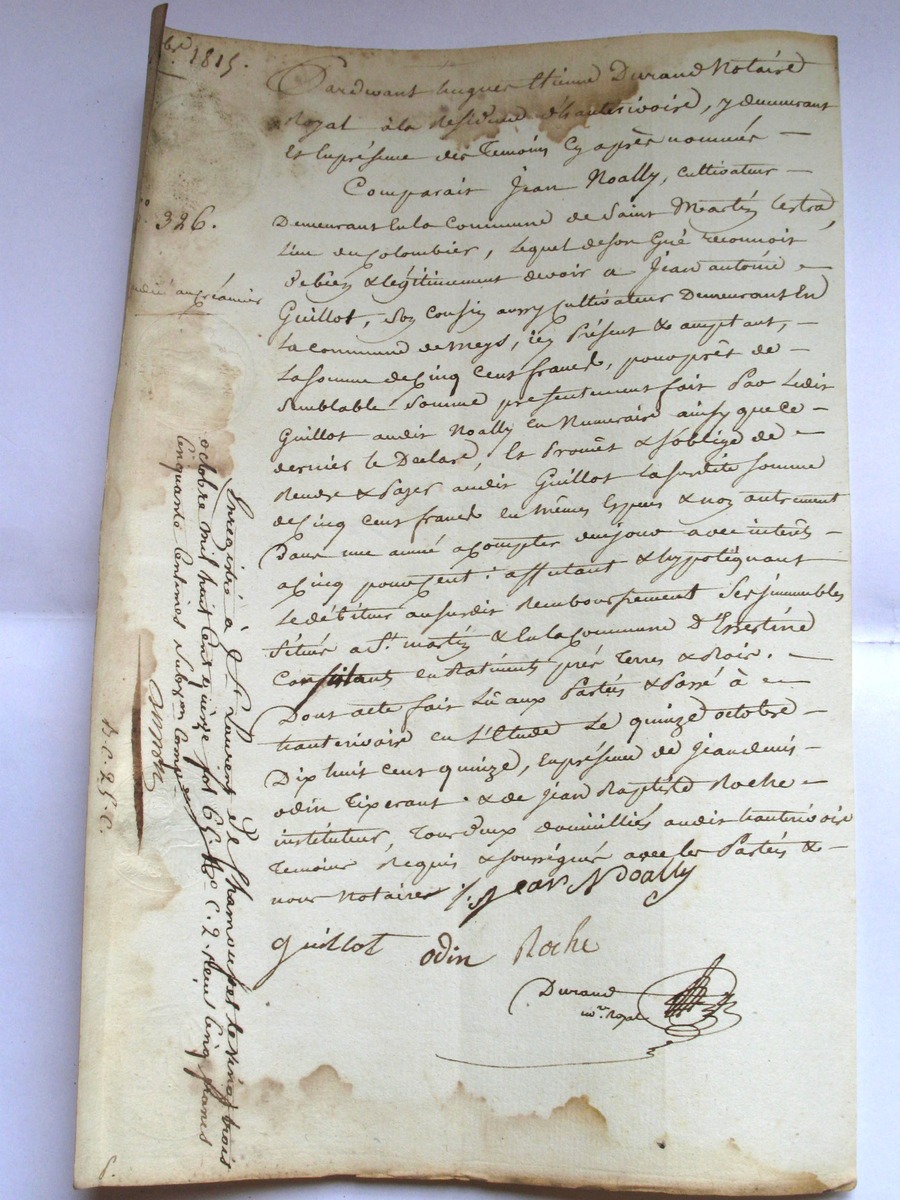 bre. 1815.
Pardevant hugues Etienne Durand Notaire
Royal à la Residence d'hauterivoire, y demeurant
Et En présence des Temoins Cy après nommés —
Comparait Jean Noally, cultivateur —
No. 326.
Demeurant En la Commune de Saint Martin Lestra,
Lieu du Colombier, Lequel de son Gré reconnoit
au créancier
De bien & légitimement devoir a Jean antoine —
Guillot, Son Cousin aussy Cultivateur Demeurant En
La Commune de meys, icy Présent & acceptant, —
La somme de Cinq Cent francs, pour prêt de —
Semblable Somme présentement fait Par Ledit
Guillot audit Noally En Numeraire ainsy que Ce —
dernier le Declare, Et Promet & s'oblige de —
Rendre & Payer audit Guillot La susdite Somme
de Cinq Cent francs En mêmes Especes & non autrement
Dans une année a Compter du jour avec intérêts —
a Cinq pour Cent : affectant & hypotéquant
Le débiteur au susdit Remboursement Ses immeubles
Situés a St. martin & En la Commune D'Essertine
Consistants en Batiments prés Terres & Bois. —
Dont acte fait Lû aux Parties & Passé à —
hauterivoire en L'Etude Le quinze octobre —
Dix huit cent quinze, En présence de Jean denis —
odin Tixerant . & de Jean Baptiste Roche —
instituteur, Tous deux domiciliés audit hauterivoire
Temoins Requis & soussignés avec les Parties & —
nous Notaire
Jean Noally
Guillot odin Roche
Durand
nre. Royal
Enregistré à St Laurent de Chamousset le vingt trois
octobre mil huit Cent quinze fol 65 Ro C. 2. Reçu Cinq francs
Cinquante Centimes Subvon Comprise
D. C. 25. C.